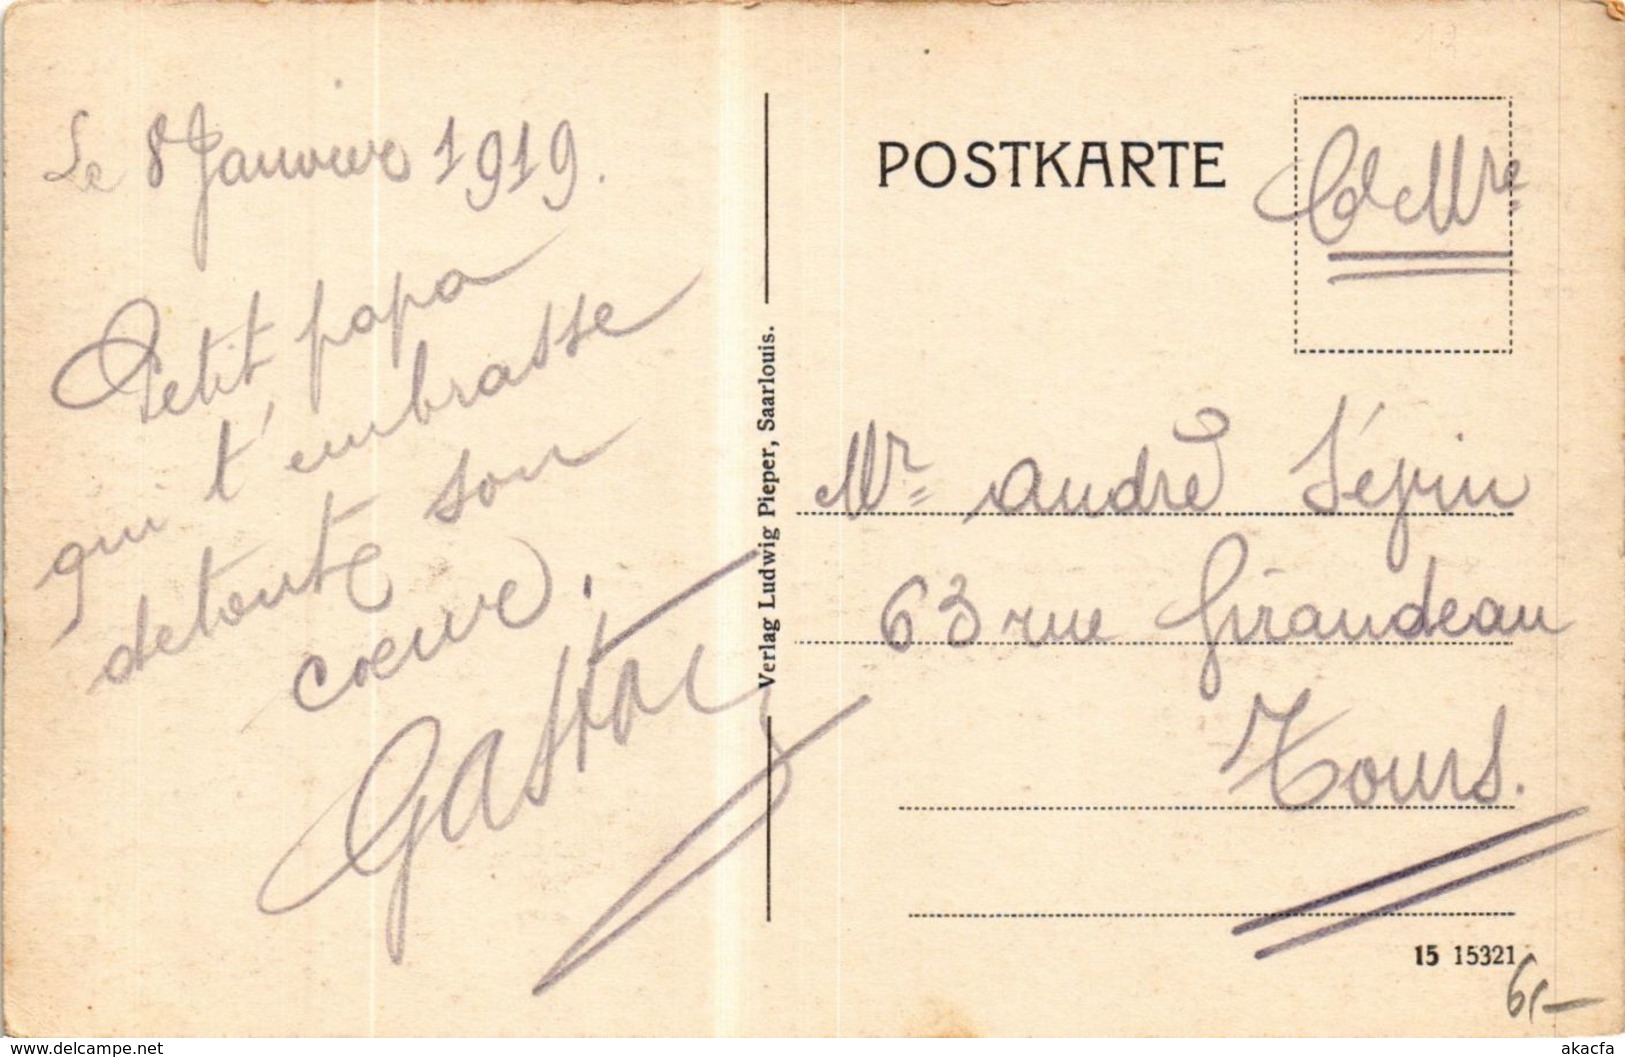 Le 8 Janvier 1919.
Petit papa
qui t'embrasse
de toute son
cœur.
Gaston
Verlag Ludwig Pieper, Saarlouis.
POSTKARTE
Mr André Pépin
63 rue Giraudeau
Tours.
15 15321
6,-
akacfa